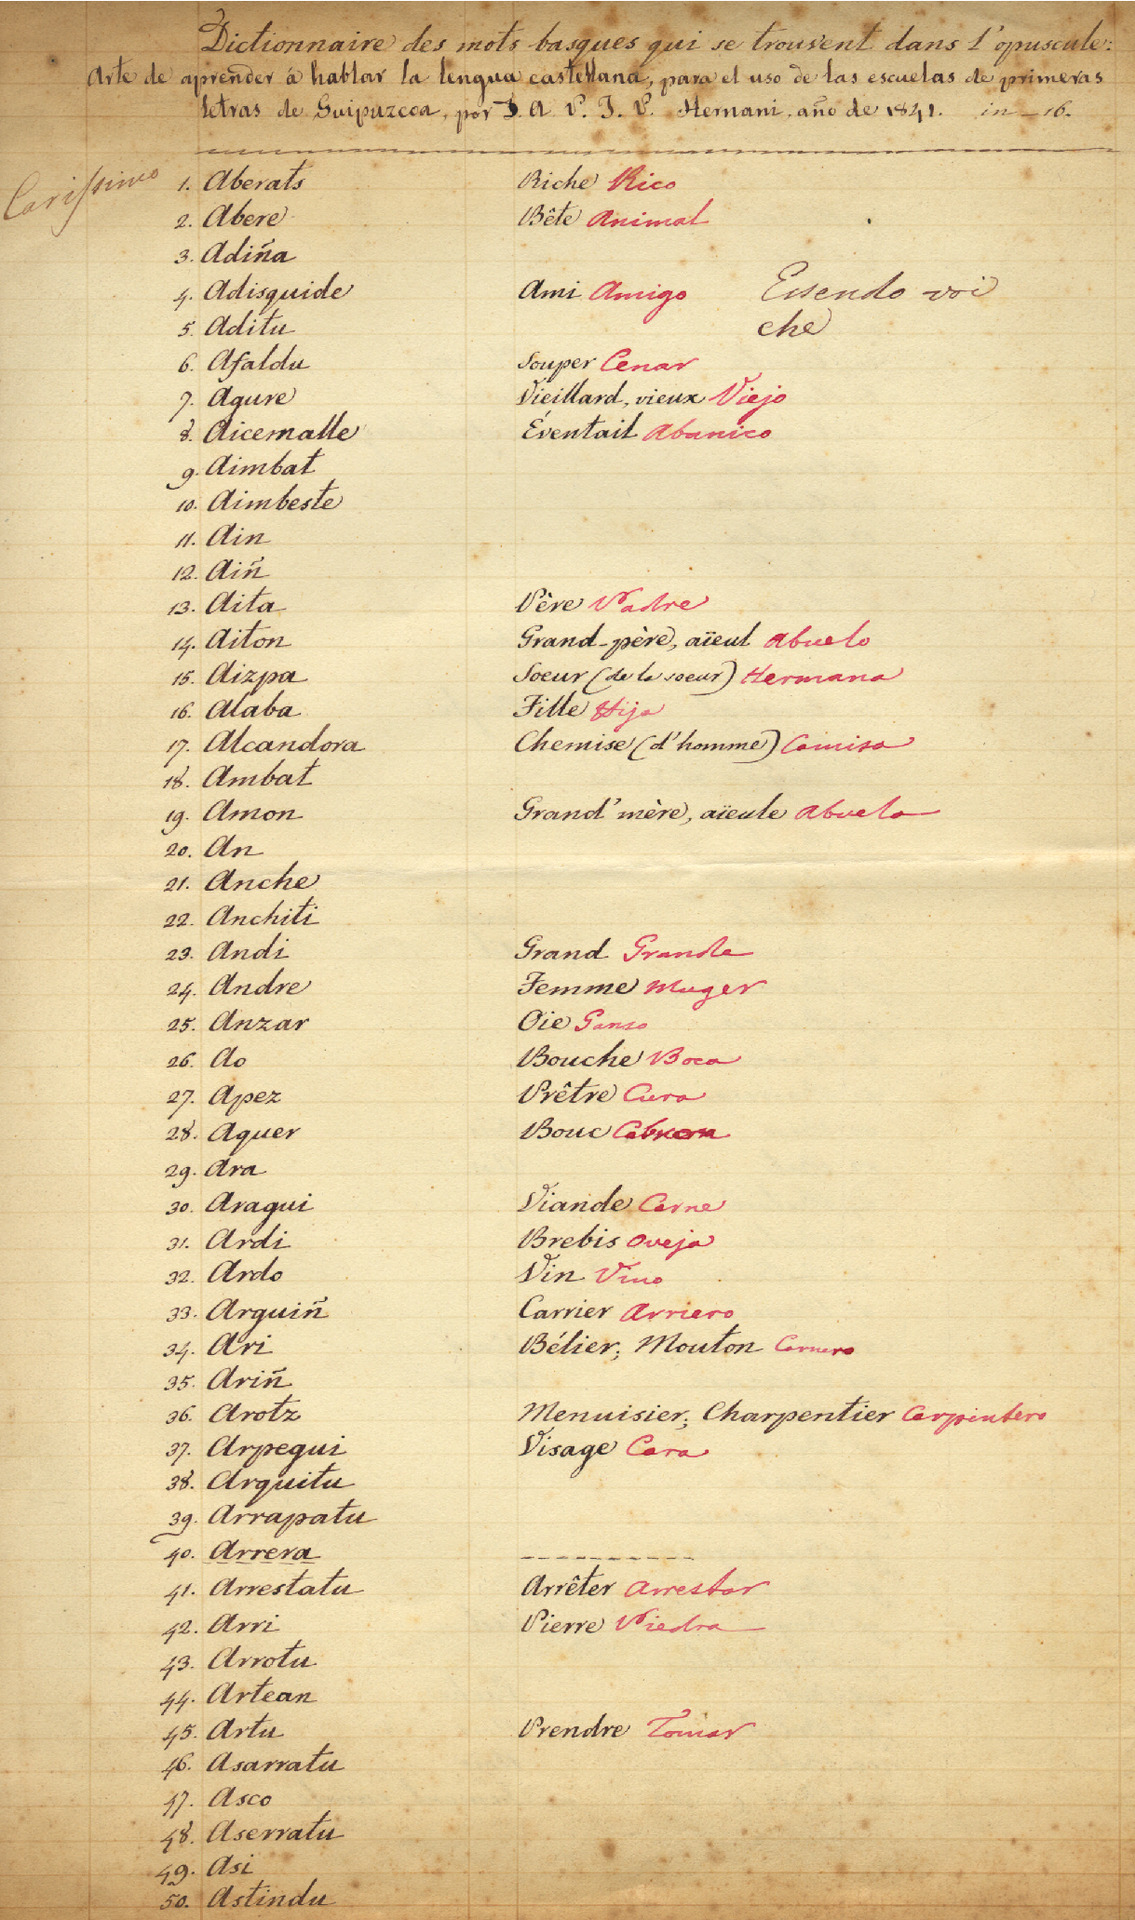 Dictionnaire des mots basques qui se trouvent dans l'opuscule:
Arte de aprender á hablar la lengua castellana, para el uso de las escuelas de primeras
letras de Guipuzcoa, por J. A. P. I. P. Hernani, año de 1841. in-16.
Carissimo
1. Aberats Riche Rico
2. Abere Bête Animal
3. Adiña
4. Adisquide Ami Amigo Essendo voi
5. Aditu che
6. Afaldu Souper Cenar
7. Agure Vieillard, vieux Viejo
8. Aicemalle Éventail Abanico
9. Aimbat
10. Aimbeste
11. Ain
12. Aiñ
13. Aita Père Padre
14. Aiton Grand-père, aïeul Abuelo
15. Aizpa Soeur (de la soeur) Hermana
16. Alaba Fille Hija
17. Alcandora Chemise (d'homme) Camisa
18. Ambat
19. Amon Grand'mère, aïeule Abuela
20. An
21. Anche
22. Anchiti
23. Andi Grand Grande
24. Andre Femme Muger
25. Anzar Oie Ganso
26. Ao Bouche Boca
27. Apez Prêtre Cura
28. Aquer Bouc Cabron
29. Ara
30. Aragui Viande Carne
31. Ardi Brebis Oveja
32. Ardo Vin Vino
33. Arguiñ Carrier Arriero
34. Ari Bélier; Mouton Carnero
35. Ariñ
36. Arotz Menuisier; Charpentier Carpintero
37. Arpegui Visage Cara
38. Arquitu
39. Arrapatu
40. Arrera ----------
41. Arrestatu Arrêter Arrestar
42. Arri Pierre Piedra
43. Arrotu
44. Artean
45. Artu Prendre Tomar
46. Asarratu
47. Asco
48. Aserratu
49. Asi
50. Astindu